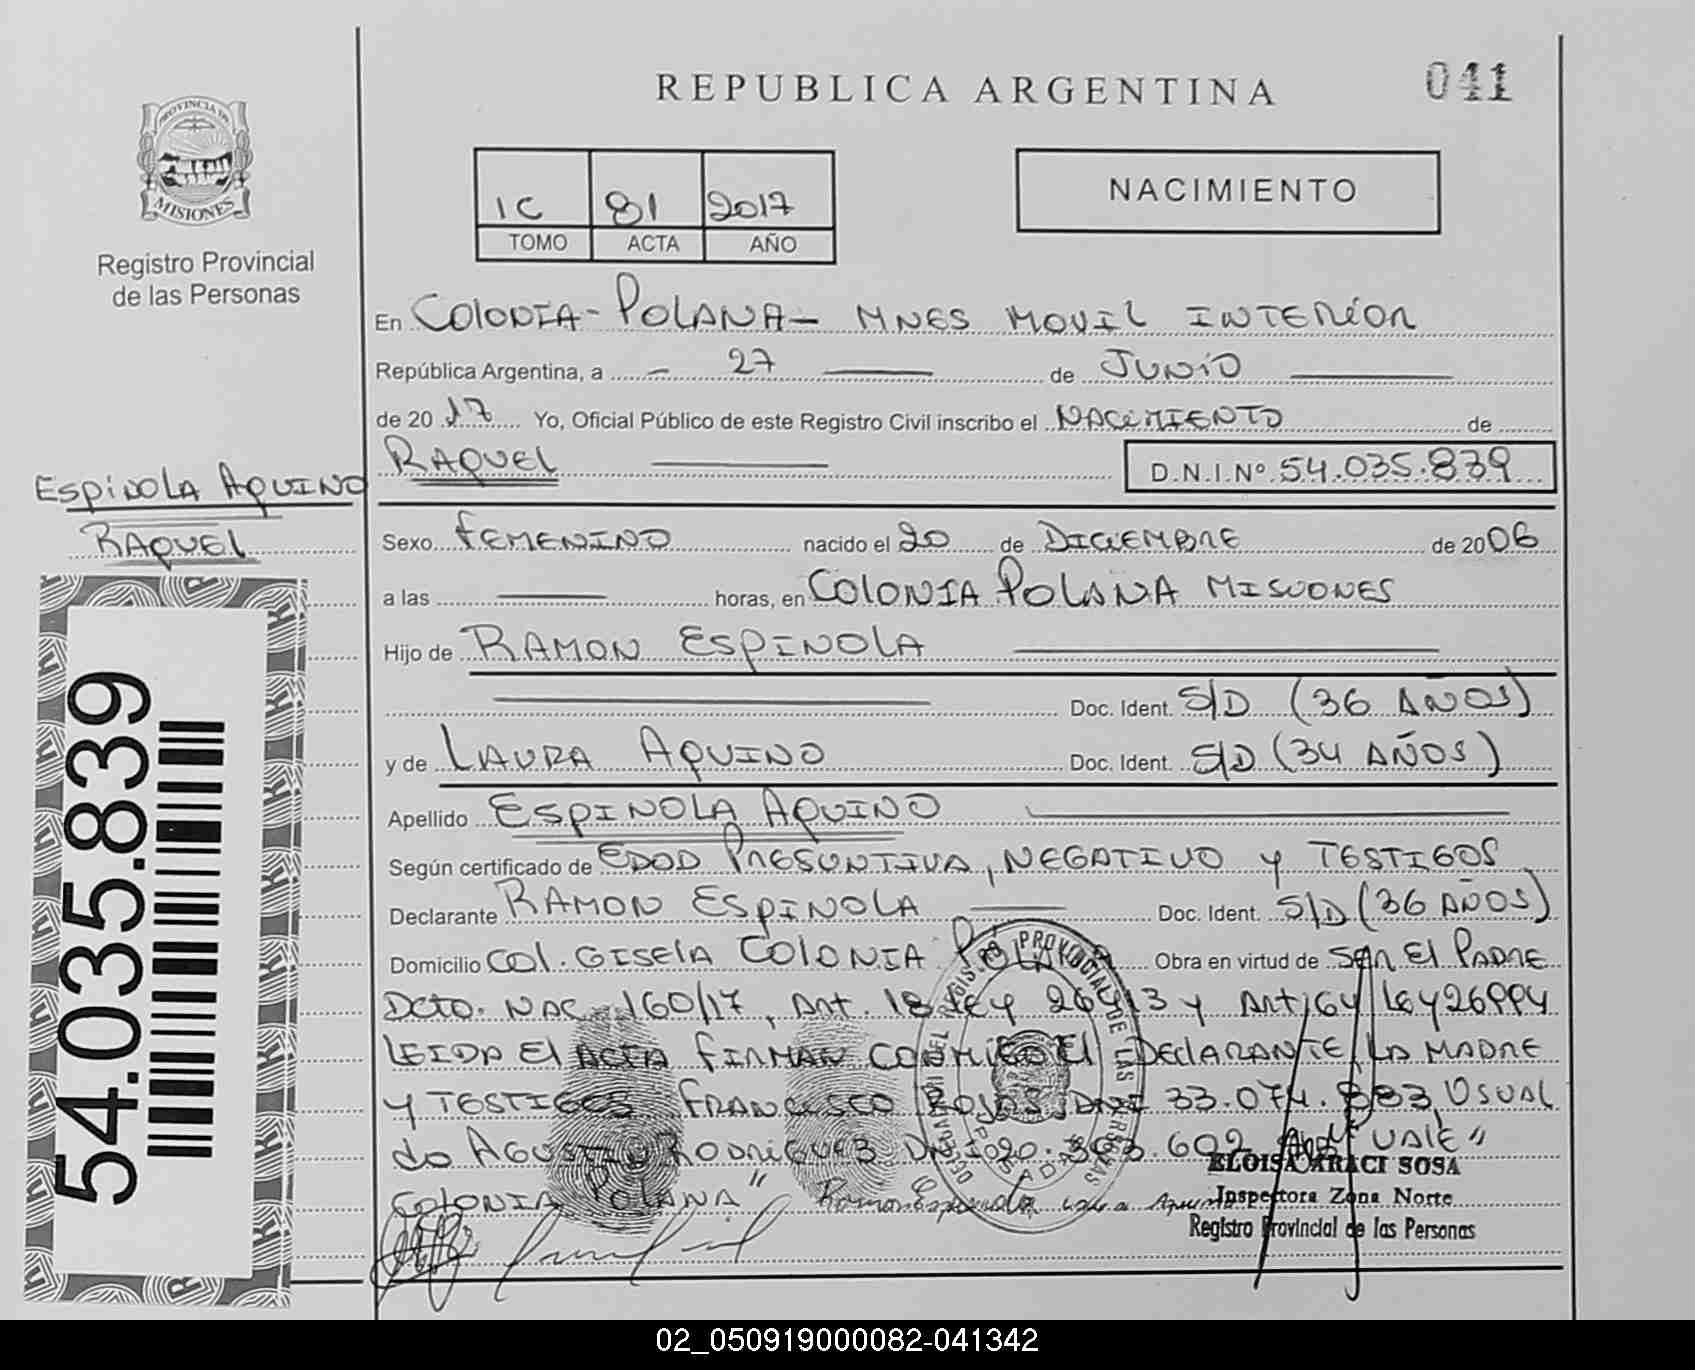 REPUBLICA ARGENTINA
041
PROVINCIA DE
MISIONES
Registro Provincial
de las Personas
1C 81 2017
TOMO ACTA AÑO
NACIMIENTO
En COLONIA - POLANA - MNES MOVIL INTERIOR
República Argentina, a 27 de JUNIO
de 20 17 Yo, Oficial Público de este Registro Civil inscribo el NACIMIENTO de
RAQUEL D.N.I.Nº 54.035.839
ESPINOLA AQUINO
RAQUEL
Sexo FEMENINO nacido el 20 de DICIEMBRE de 20 06
a las horas, en COLONIA POLANA MISIONES
Hijo de RAMON ESPINOLA
Doc. Ident. S/D (36 AÑOS)
y de LAURA AQUINO Doc. Ident. S/D (34 AÑOS)
Apellido ESPINOLA AQUINO
Según certificado de EDAD PRESUNTIVA, NEGATIVO y TESTIGOS
Declarante RAMON ESPINOLA Doc. Ident. S/D (36 AÑOS)
Domicilio COL. GISELA COLONIA POLANA Obra en virtud de SER EL PADRE
DCTO. NAC. 160/17, ART. 18 LEY 26413 y ART. 64 LEY 26994
LEIDA EL ACTA FIRMAN CONMIGO EL DECLARANTE LA MADRE
y TESTIGOS FRANCISCO ROJAS DNI 33.074.883, OSVAL
do AGUSTIN RODRIGUEZ DNI 20.303.602 "VALE"
COLONIA POLANA"
Ramon Espinola
ELOISA ARACI SOSA
Inspectora Zona Norte
Registro Provincial de las Personas
54.035.839
02_050919000082-041342